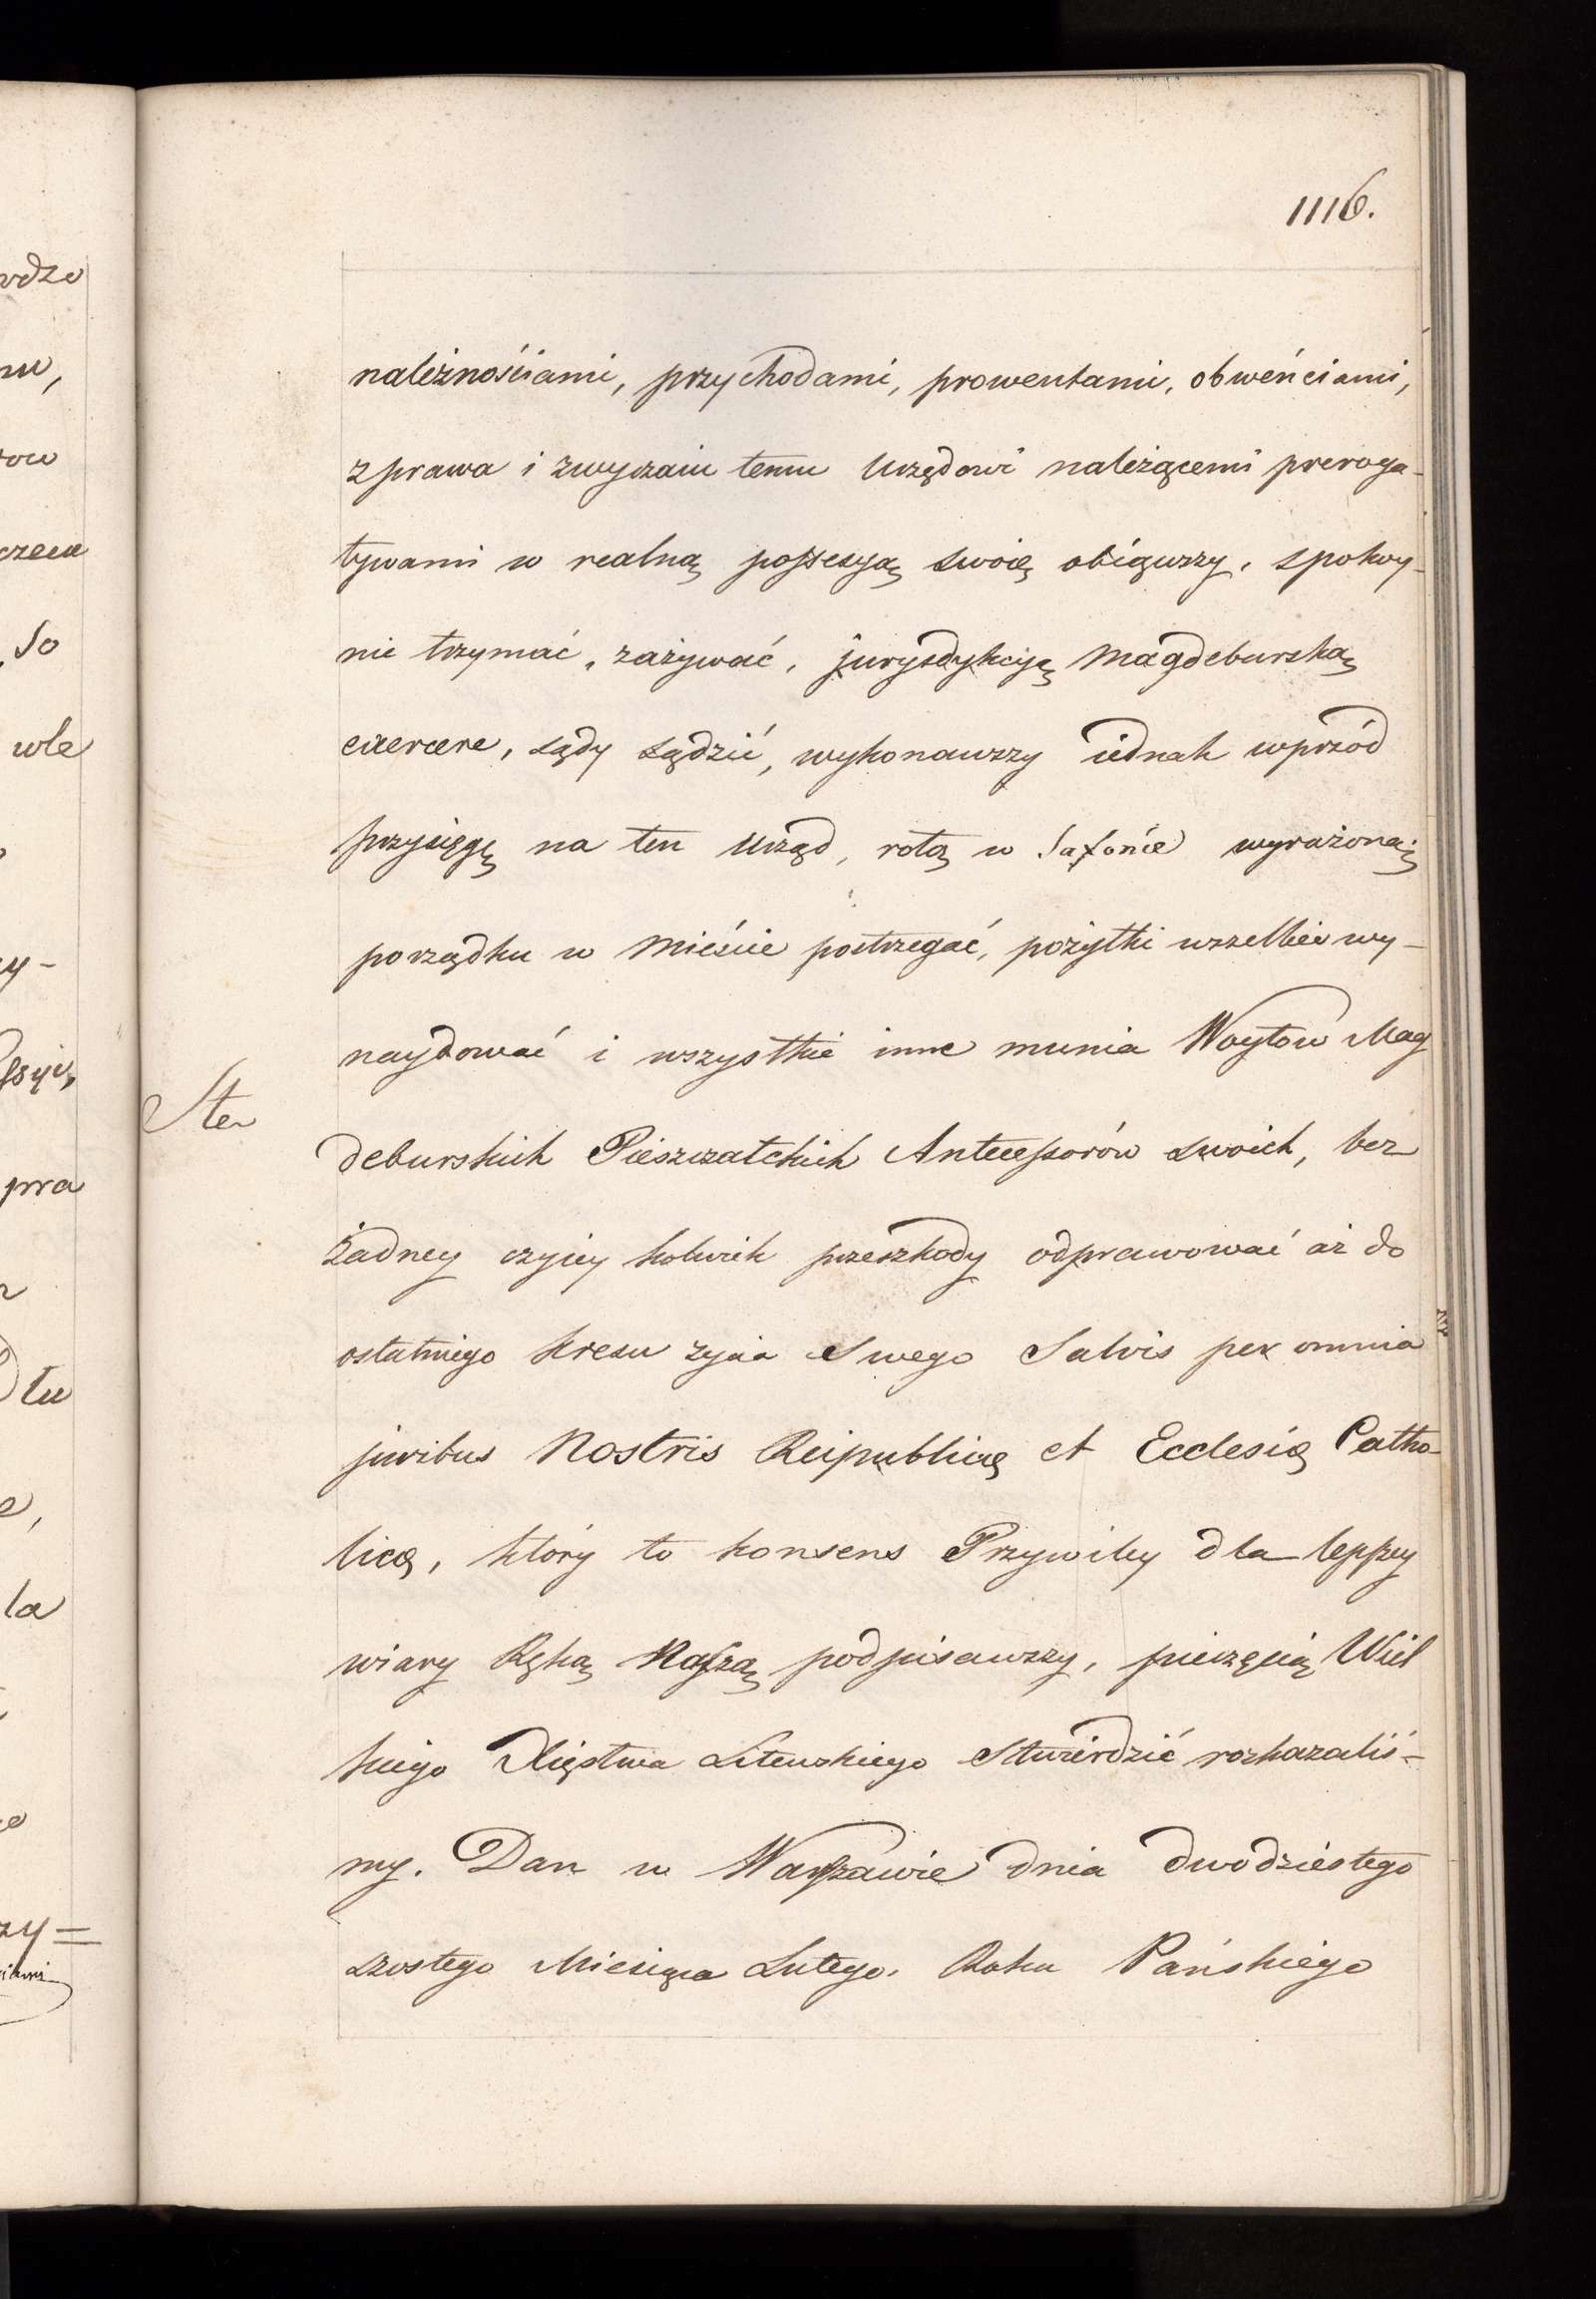 1116.
należnościami, przychodami, prowentami, obwenciami,
z prawa i zwyczaiu temu Urzędowi należącemi preroga-
tywami w realną possesyą swoię obiąwszy, spokoy-
nie trzymać, zażywać, jurysdykcyą Magdeburską
exercere, sądy sądzić, wykonawszy iednak wprzód
przysięgę na ten Urząd, rotą w Saxonie wyrażoną;
porządku w Mieście postrzegać, pożytki wszelkie wy-
naydować i wszystkie inne munia Woytow Mag
deburskich Pieszczatckich Antecessorów swoich, bez
żadney czyiey kolwiek przeszkody odprawować aż do
ostatniego kresu życia Swego Salvis per omnia
juribus Nostris Reipublicę et Ecclesię Catho-
licę, który to konsens Przywiley dla lepszey
wiary Ręką Naszą podpisawszy, pieczęcią Wiel
kiego Xięstwa Litewskiego Stwierdzić rozkazaliś-
my. Dan w Warszawie dnia dwódziestego
szostego Miesiąca Lutego. Roku Pańskiego
Ste
wdze
czeu
wle
pra
tu
la
zy=